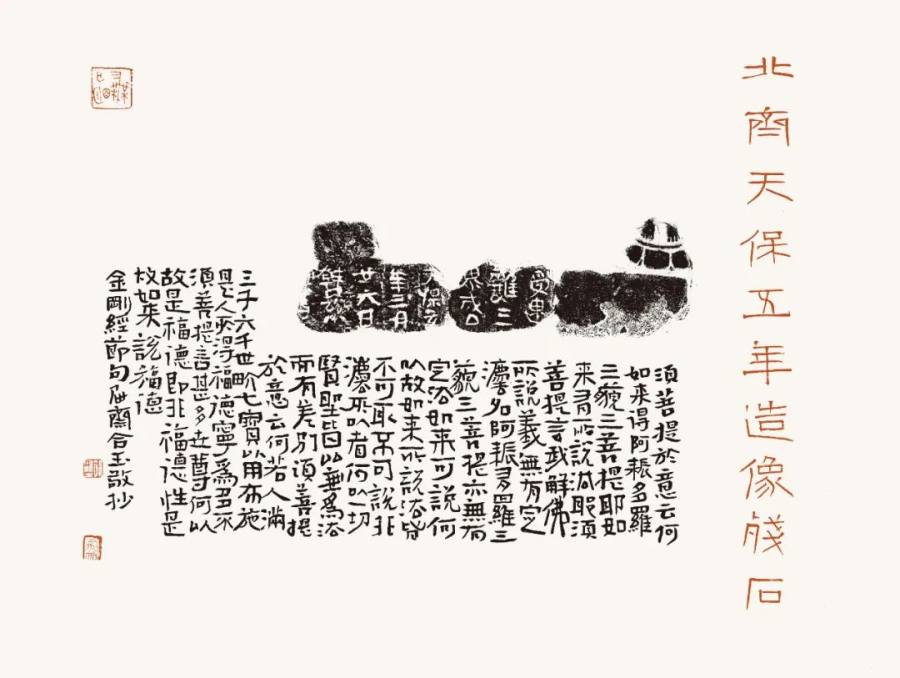 北齊天保五年造像殘石
天保五
年三月
廿六日
須菩提於意云何
如來得阿耨多羅
三藐三菩提耶如
來有所說法耶須
菩提言我解佛
所說義無有定
灋名阿耨多羅三
藐三菩提亦無有
定法如來可說何
以故如來所說法皆
不可取不可說非
灋所以者何一切
賢聖皆以無為法
而有差別須菩提
於意云何若人滿
三千大千世界七寶以用布施
是人所得福德寧為多不
須菩提言甚多世尊何以
故是福德即非福德性是
故如來說福德
金剛經節句 齋合玉敬抄